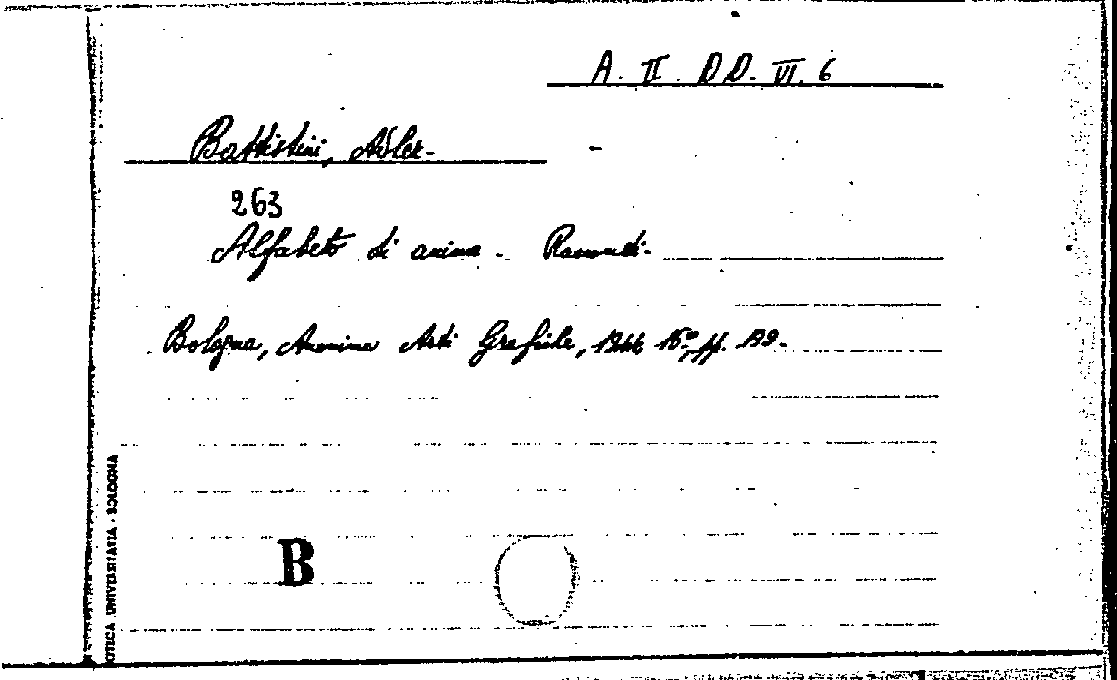 A. II. DD. VI. 6
Battistini, Adler-
263
Alfabeto di anima -
Bologna, Anonima Arti Grafiche, 1944 16°, pp. 139.
B
OTECA UNIVERSITARIA - BOLOGNA